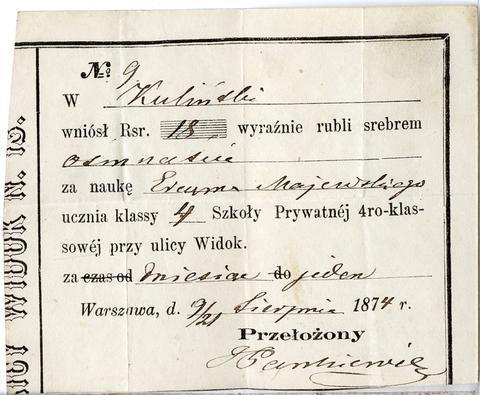 № 9
W Kuliński
wniósł Rsr. 18 wyraźnie rubli srebrem
ośmnaście
za naukę Erazma Majewskiego
ucznia klassy 4 Szkoły Prywatnéj 4ro-klas-
sowéj przy ulicy Widok.
za czas od miesiąc do jeden
Warszawa, d. 9/21 Sierpnia 1874 r.
Przełożony
JPankiewicz
WIDOK N. 13.